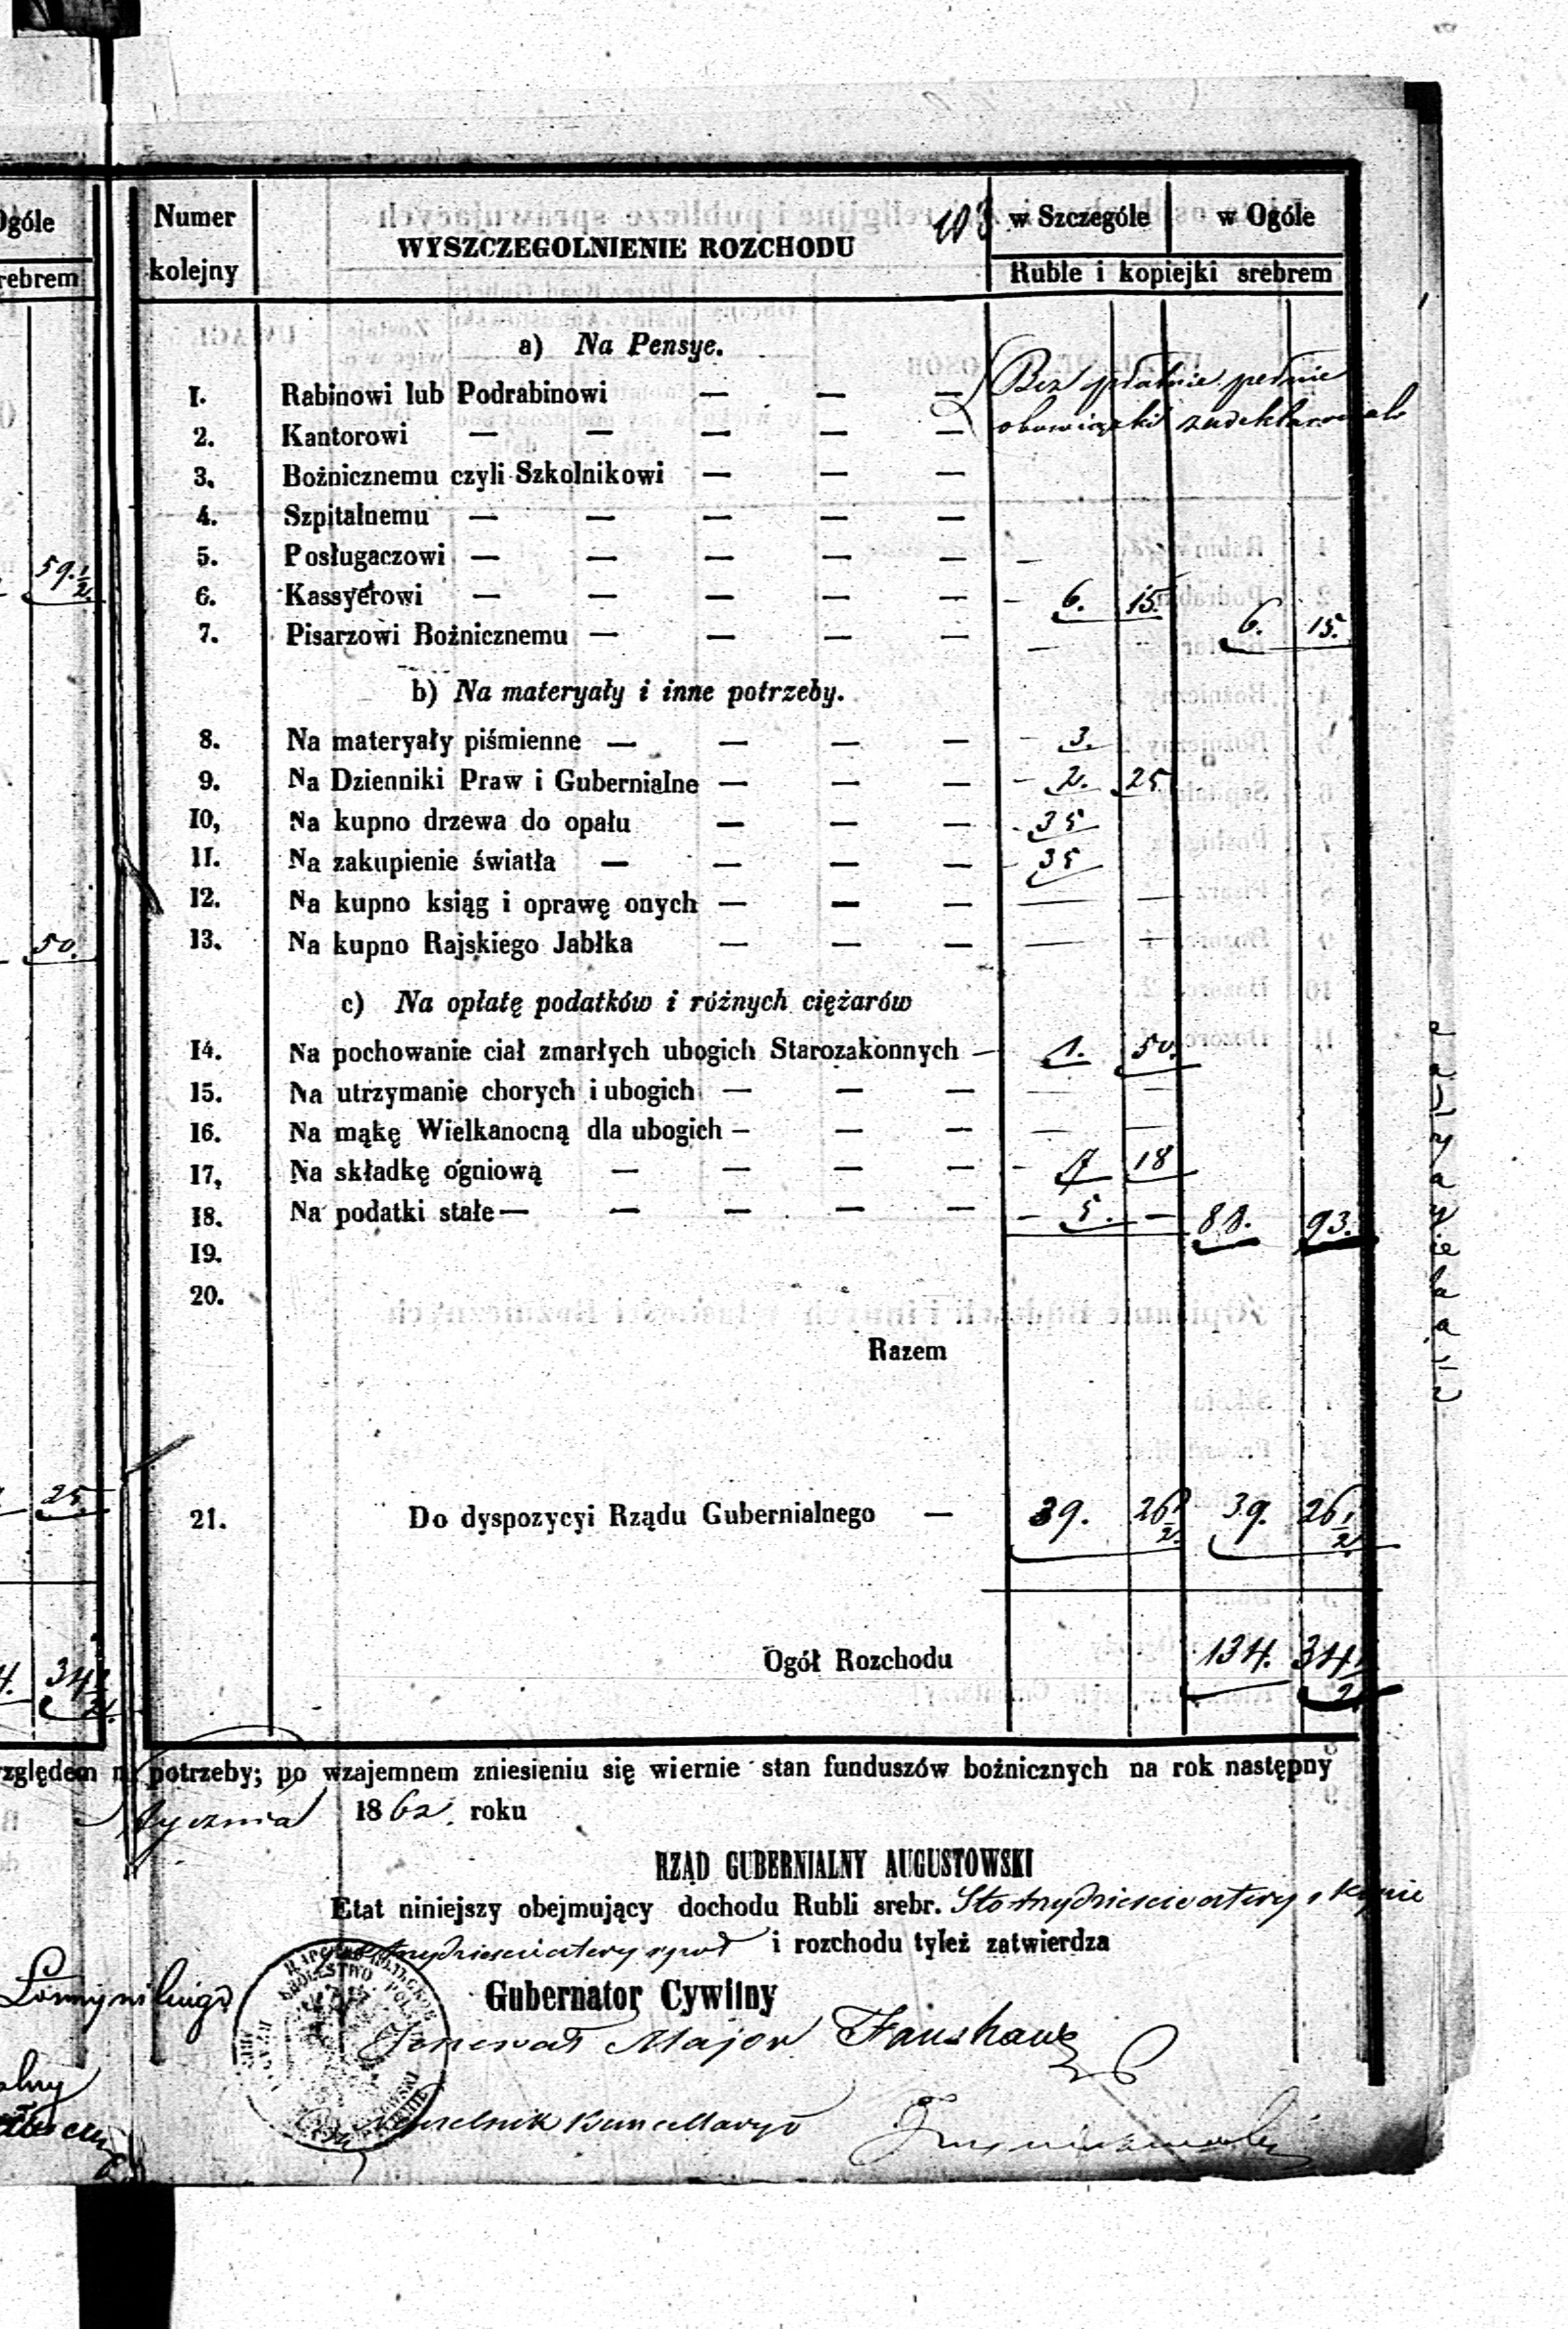 Ogóle
srebrem
59. 1/2
50.
25
4. 34 1/2
Numer kolejny
WYSZCZEGOLNIENIE ROZCHODU
103
w Szczególe w Ogóle
Ruble i kopiejki srebrem
a) Na Pensye.
1. Rabinowi lub Podrabinowi — — — Bezpłatnie pełnić
2. Kantorowi — — — — — obowiązki zadeklarowali
3. Bożnicznemu czyli Szkolnikowi — — —
4. Szpitalnemu — — — — —
5. Posługaczowi — — — — — —
6. Kassyerowi — — — — — — 6. 15.
7. Pisarzowi Bożnicznemu — — — — — 6. 15.
b) Na materyały i inne potrzeby.
8. Na materyały piśmienne — — — — — 3.
9. Na Dzienniki Praw i Gubernialne — — — — 2. 25
10, Na kupno drzewa do opału — — — - 35
11. Na zakupienie światła — — — — - 35
12. Na kupno ksiąg i oprawę onych — — — — —
13. Na kupno Rajskiego Jabłka — — — — —
c) Na opłatę podatków i różnych ciężarów
14. Na pochowanie ciał zmarłych ubogich Starozakonnych — 1. 50.
15. Na utrzymanie chorych i ubogich — — — — —
16. Na mąkę Wielkanocną dla ubogich — — — — —
17, Na składkę ogniową — — — — - 7 18
18. Na podatki stałe — — — — — 5. — 88. 93.
19.
20.
Razem
21. Do dyspozycyi Rządu Gubernialnego — 39. 26 1/2 39. 26 1/2
Ogół Rozchodu 134. 34 1/2
względem potrzeby; po wzajemnem zniesieniu się wiernie stan funduszów bożnicznych na rok następny
stycznia 1862. roku
RZĄD GUBERNIALNY AUGUSTOWSKI
Etat niniejszy obejmujący dochodu Rubli srebr. Sto trzydzieści cztery i kopie
trzydzieści cztery i pół i rozchodu tyleż zatwierdza
Gubernator Cywilny
Jenerał Major
Naczelnik Kancellaryi
KRÓLESTWO POL